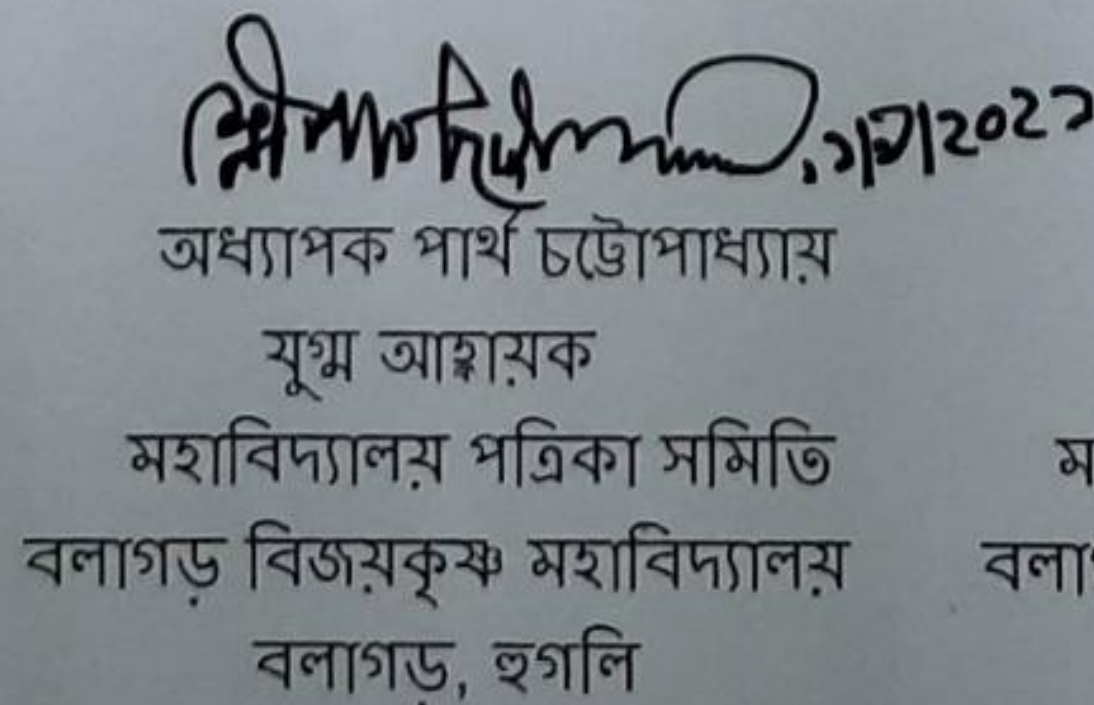 অধ্যাপক পার্থ চট্টোপাধ্যায়
যুগ্ম আহ্বায়ক
মহাবিদ্যালয় পত্রিকা সমিতি
বলাগড় বিজয়কৃষ্ণ মহাবিদ্যালয়
বলাগড়, হুগলি